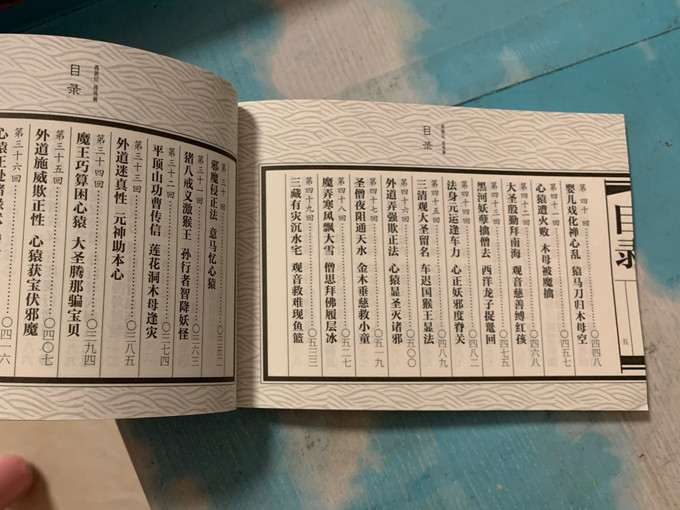 目录
第三十回
邪魔侵正法 意马忆心猿
第三十一回
猪八戒义激猴王 孙行者智降妖怪 〇三六三
第三十二回
平顶山功曹传信 莲花洞木母逢灾 〇三七四
第三十三回
外道迷真性 元神助本心 〇三八五
第三十四回
魔王巧算困心猿 大圣腾那骗宝贝 〇三九四
第三十五回
外道施威欺正性 心猿获宝伏邪魔 〇四〇七
第三十六回
〇四一六
目录
目录
五
第四十回
婴儿戏化禅心乱 猿马刀归木母空 〇四四八
第四十一回
心猿遭火败 木母被魔擒
第四十二回
大圣殷勤拜南海 观音慈善缚红孩 〇四六八
第四十三回
黑河妖孽擒僧去 西洋龙子捉鼍回 〇四七五
第四十四回
法身元运逢车力 心正妖邪度脊关 〇四八二
第四十五回
三清观大圣留名 车迟国猴王显法 〇四八九
第四十六回
外道弄强欺正法 心猿显圣灭诸邪 〇五〇〇
第四十七回
圣僧夜阻通天水 金木垂慈救小童 〇五一九
第四十八回
魔弄寒风飘大雪 僧思拜佛履层冰 〇五二七
第四十九回
三藏有灾沉水宅 观音救难现鱼篮 〇五三三